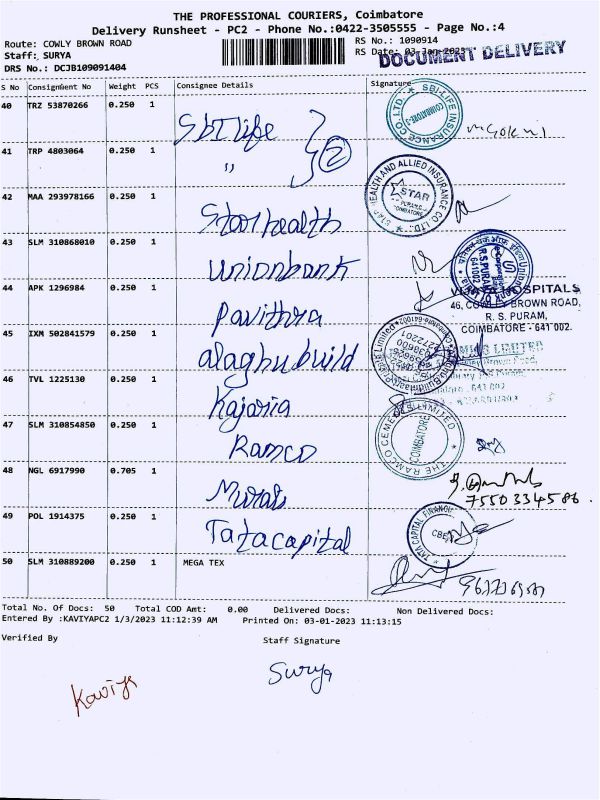 THE PROFESSIONAL COURIERS, Coimbatore
Delivery Runsheet - PC2 - Phone No.:0422-3505555 - Page No.:4
Route: COWLY BROWN ROAD
RS No.: 1090914
Staff: SURYA
RS Date: 03-Jan-2023
DOCUMENT DELIVERY
DRS No.: DCJB109091404
S No Consignment No Weight PCS Consignee Details Signature
40 TRZ 53870266 0.250 1 SbI life
SBI LIFE INSURANCE CO. LTD.
COIMBATORE
41 TRP 4803064 0.250 1 ,, 2
STAR HEALTH AND ALLIED INSURANCE CO. LTD.
STAR
COIMBATORE
42 MAA 293978166 0.250 1 Star health
43 SLM 310868010 0.250 1 Unionbank
R S PURAM
641002
44 APK 1296984 0.250 1 Pavithra
HOSPITALS
46, COWLEY BROWN ROAD,
R. S. PURAM,
COIMBATORE - 641 002.
45 IXM 502841579 0.250 1 alaghubuild
LIMITED
46 TVL 1225130 0.250 1 Kajaria
47 SLM 310854850 0.250 1 Ramco
THE RAMCO CEMENTS LIMITED
COIMBATORE
48 NGL 6917990 0.705 1 Murali
7550334586.
49 POL 1914375 0.250 1 Tatacapital
TATA CAPITAL FINANCIAL
CBE
50 SLM 310889200 0.250 1 MEGA TEX
Total No. Of Docs: 50 Total COD Amt: 0.00 Delivered Docs: Non Delivered Docs:
Entered By :KAVIYAPC2 1/3/2023 11:12:39 AM Printed On: 03-01-2023 11:13:15
Verified By Staff Signature
Kaviya
Surya